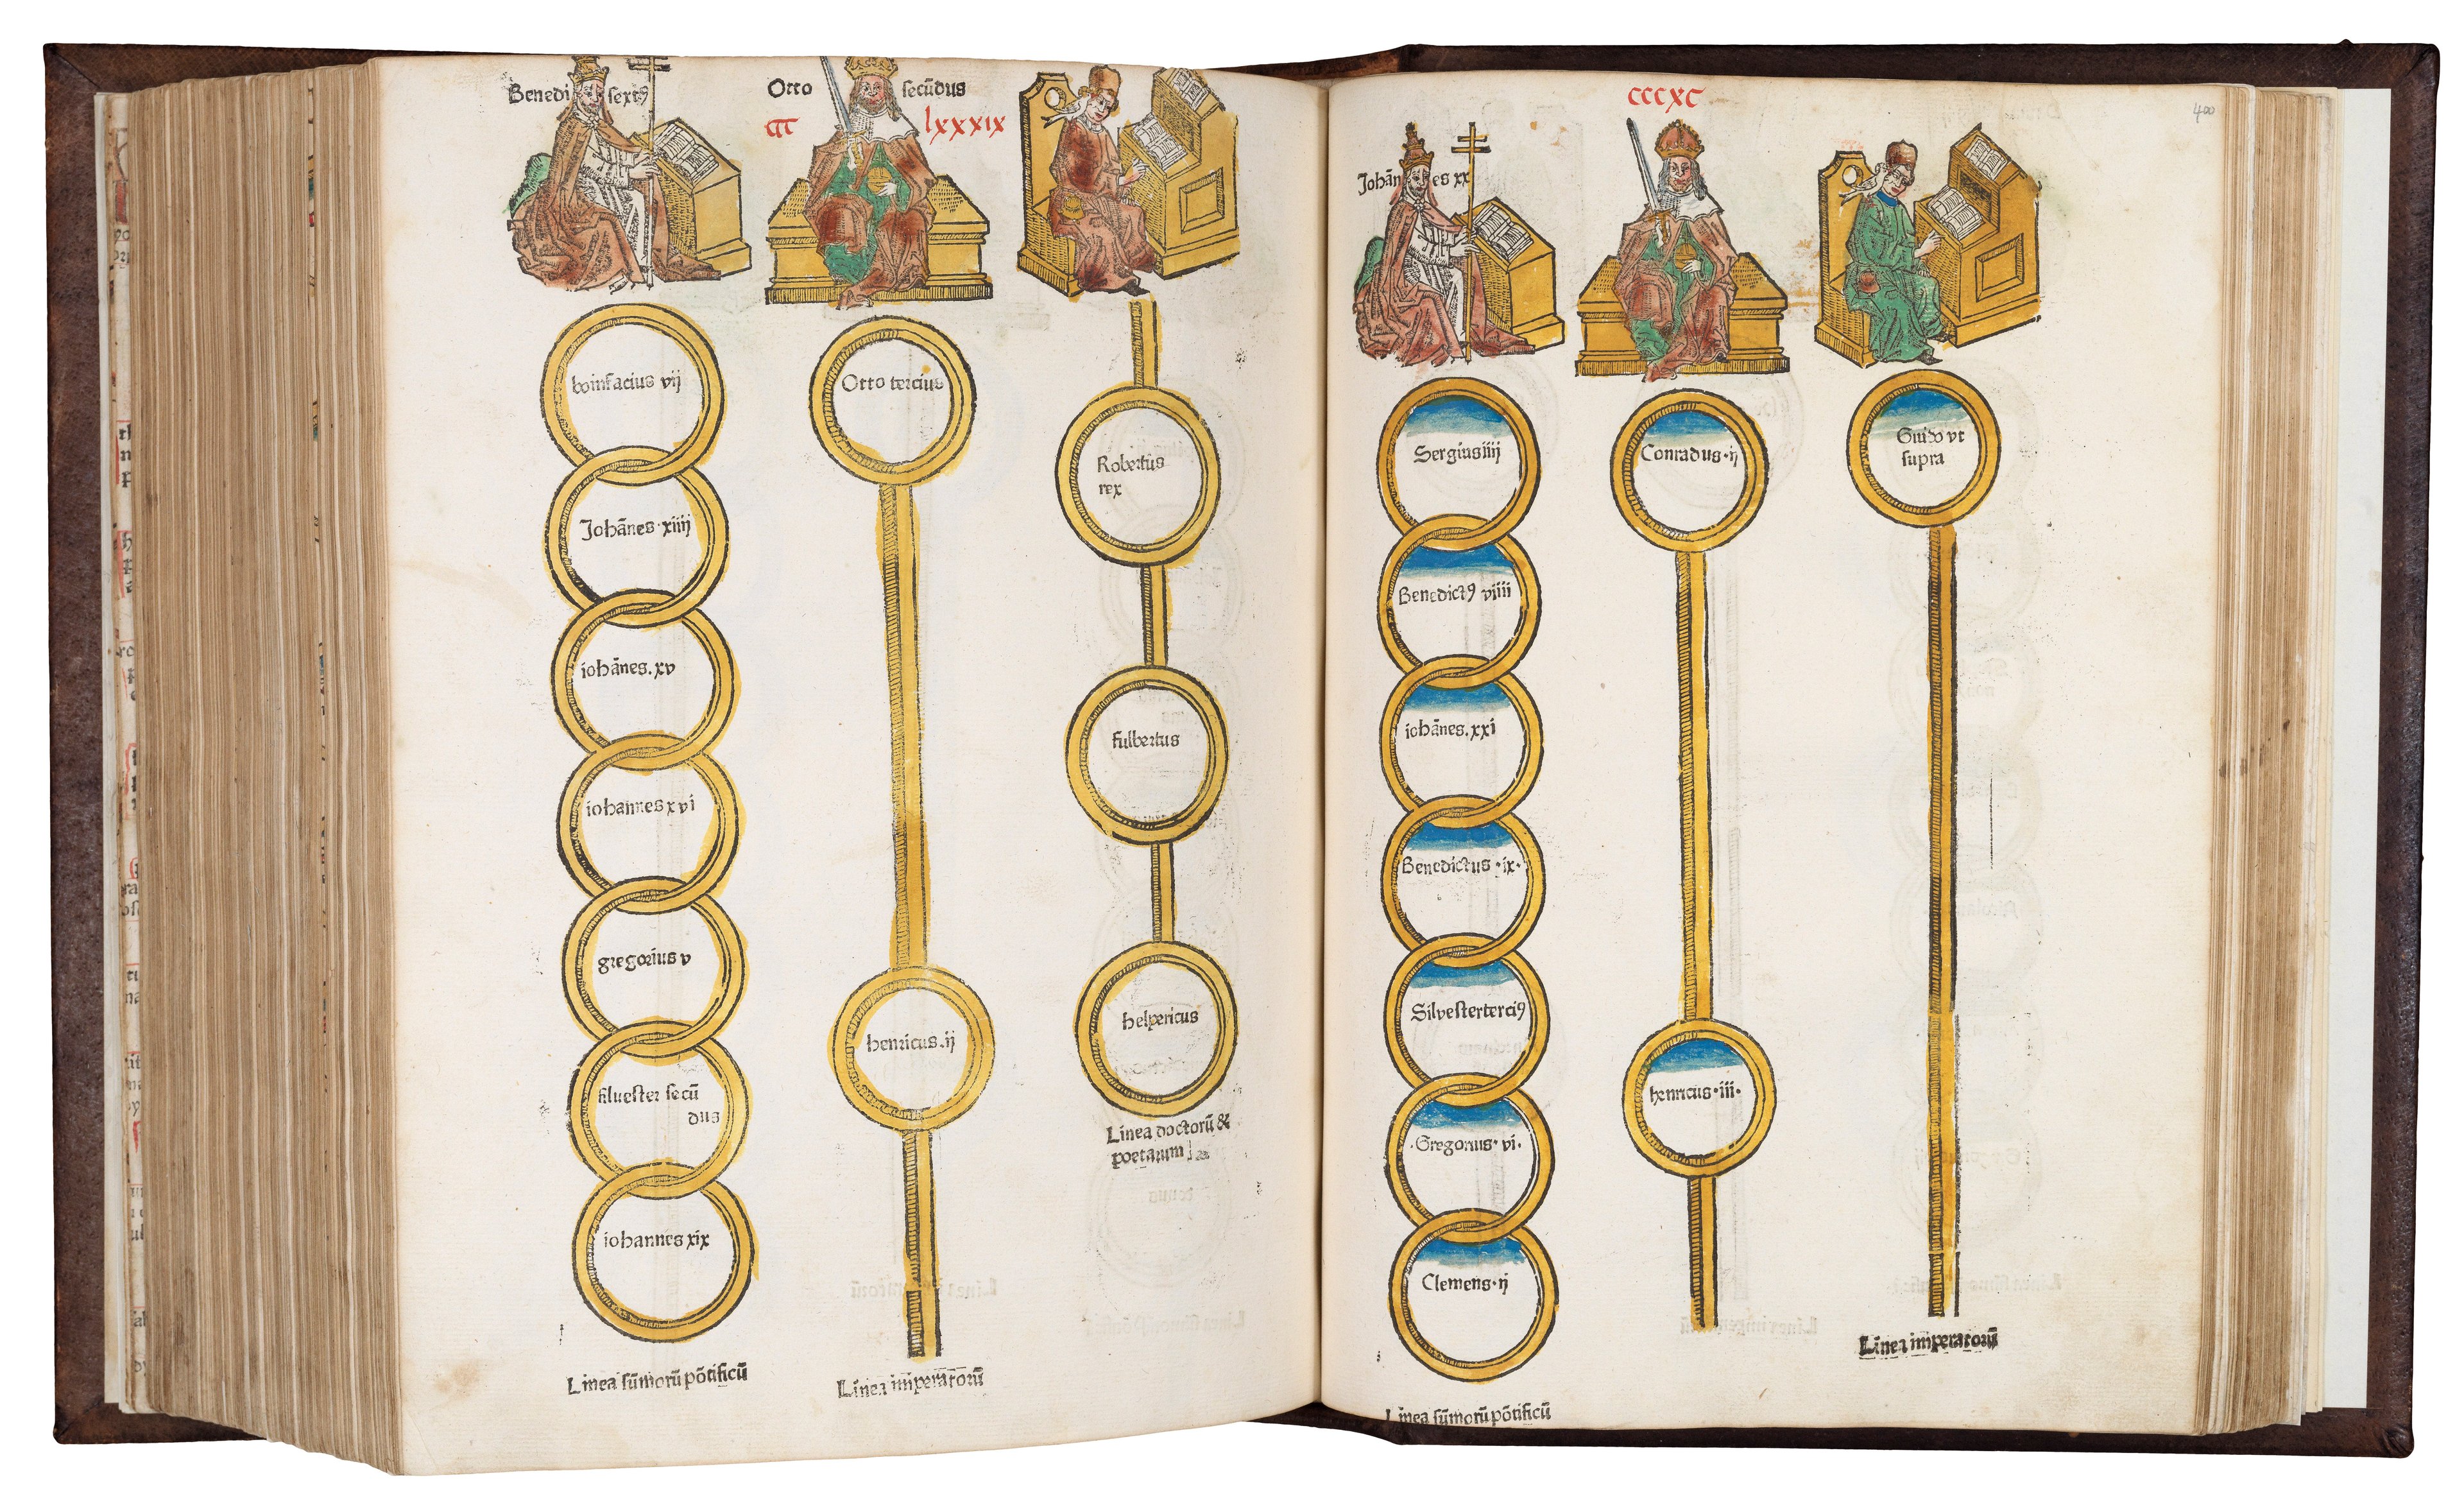 Benedi sextꝰ
Otto secūdus
CCC lxxxix
bonifacius vij
Johānes·xiiij
iohānes.xv
iohannes xvi
gregorius v
siluester secū
dus
iohannes xix
Linea sūmorū pōtificū
Otto tercius
henricus.ij
Linea imperatorū
Robertus
rex
fulbertus
helpericus
Linea doctorū &
poetarum
CCCXC
400
Johānes xx
Sergius iiij
Benedictꝰ viiii
iohānes.xxi
Benedictus·ix·
Silvester terciꝰ
·Gregorius·vi·
Clemens·ij
Linea sūmorū pōtificū
Conradus·ij
henricus·iii·
Guido vt
supra
Linea imperatorū